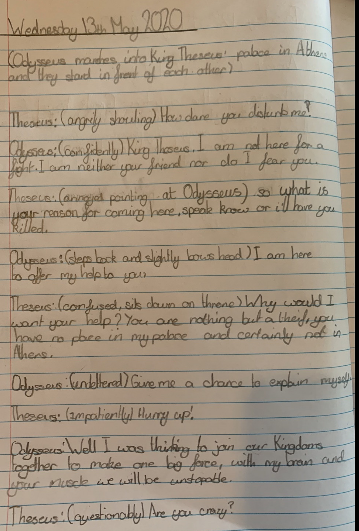 Wednesday 13th May 2020
(Odysseus marches into King Theseus' palace in Athens
and they stand in front of each other)
Theseus: (angrily shouting) How dare you disturb me!
Odysseus: (confidently) King Theseus, I am not here for a
fight. I am neither your friend nor do I fear you.
Theseus: (annoyed pointing at Odysseus) so what is
your reason for coming here, speak know or i'll have you
killed.
Odysseus: (steps back and slightly bows head) I am here
to offer my help to you
Theseus: (confused, sits down on throne) Why would I
want your help? You are nothing but a theif, you
have no place in my palace and certainly not in
Athens.
Odysseus: (undettered) Give me a chance to explain myself.
Theseus: (impatiently) Hurry up!
Odysseus: Well I was thinking to join our Kingdoms
together to make one big force, with my brain and
your muscle we will be unstopable.
Theseus: (questionably) Are you crazy?